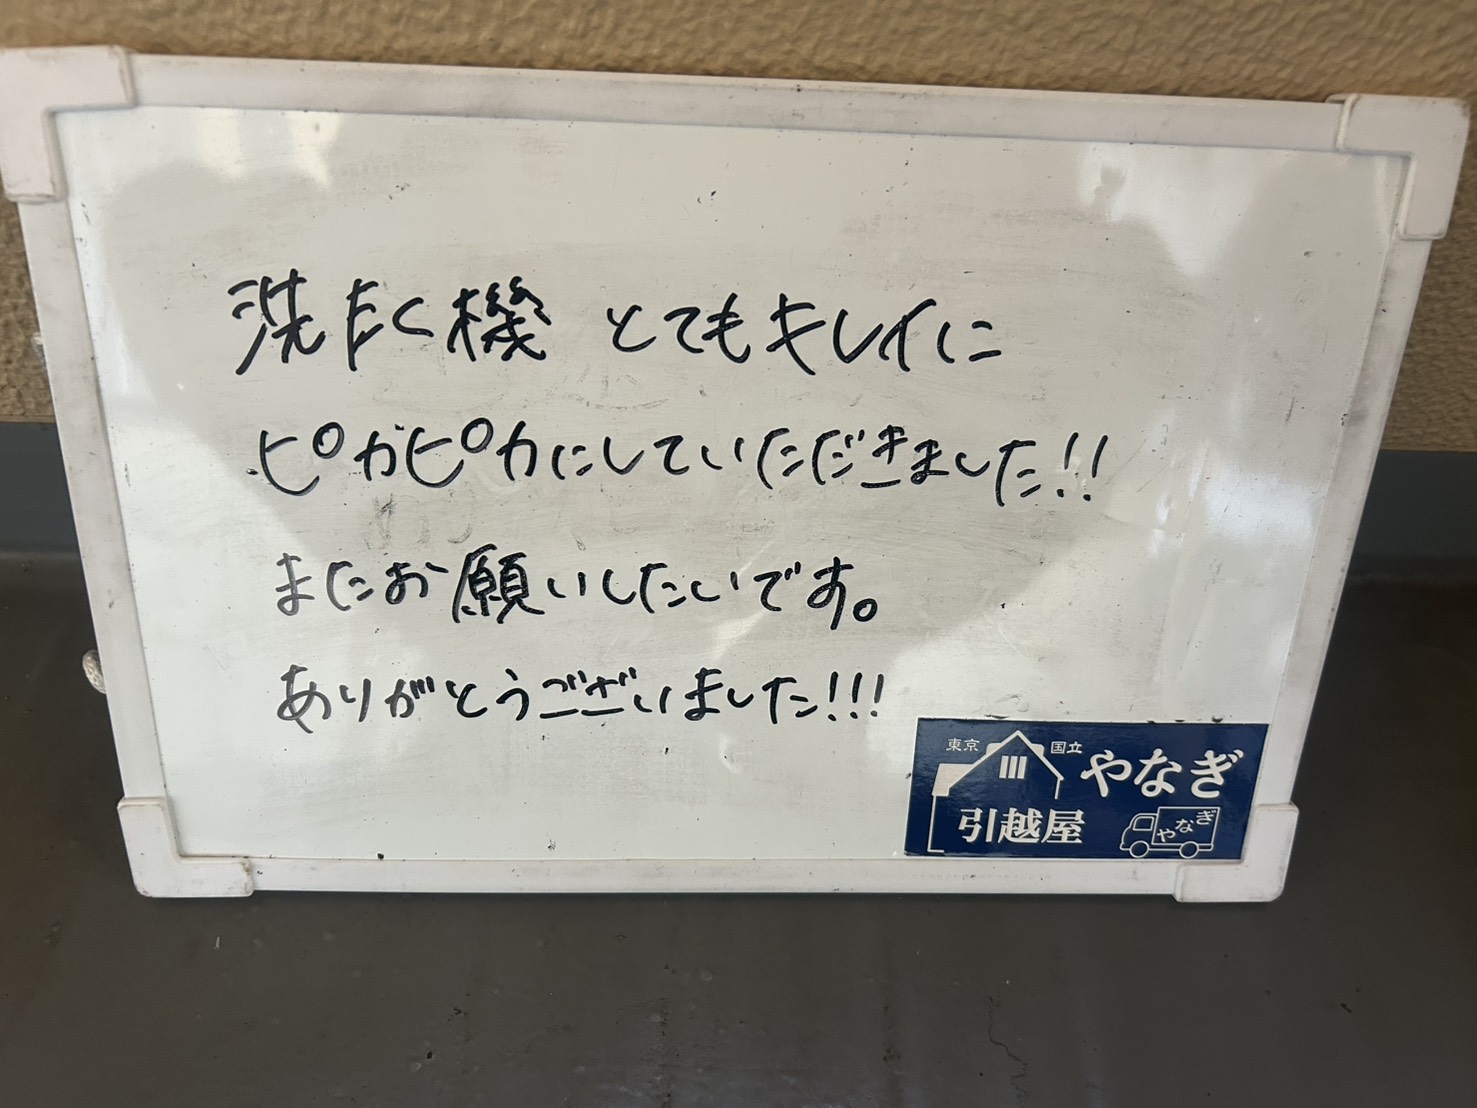 洗たく機 とてもキレイに
ピカピカにしていただきました!!
またお願いしたいです。
ありがとうございました!!!
東京 国立 やなぎ
引越屋
やなぎ